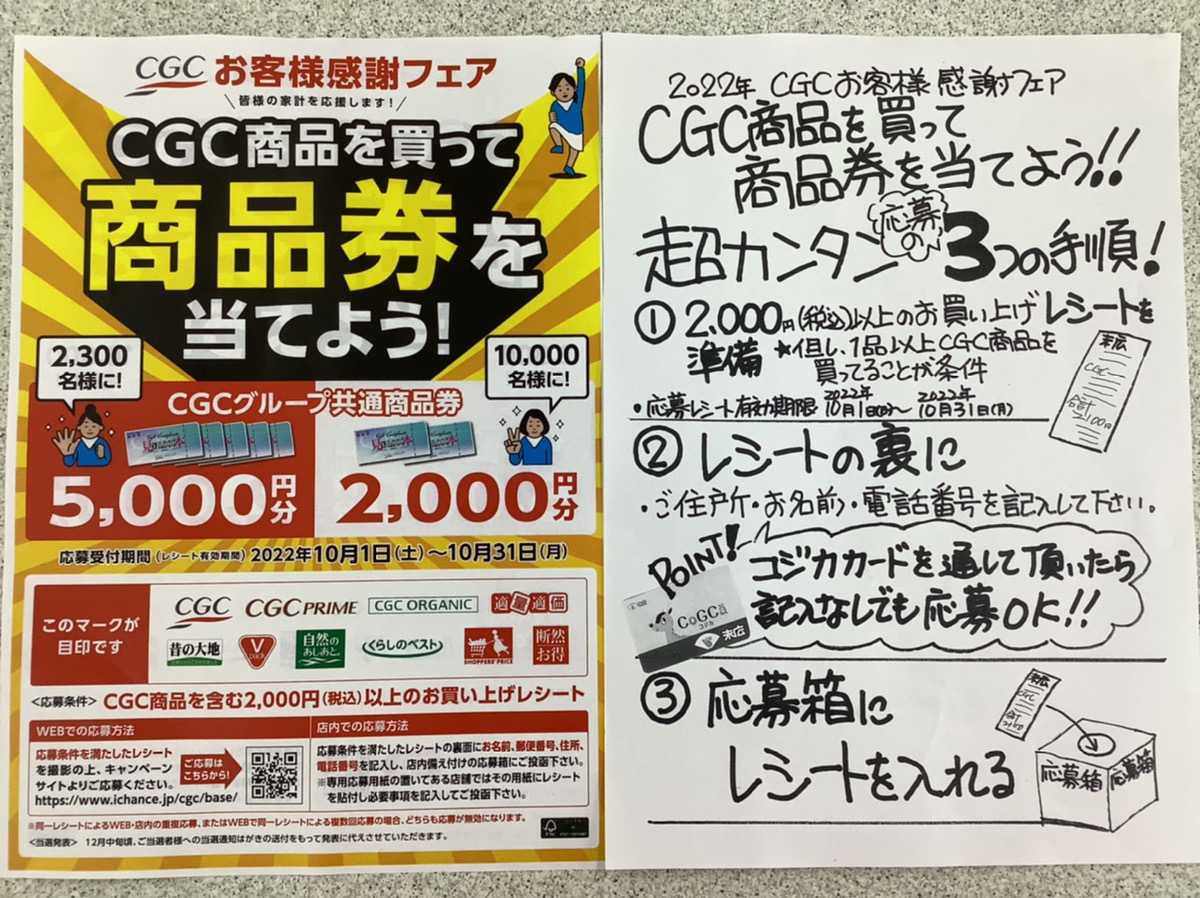 CGC お客様感謝フェア
皆様の家計を応援します!
CGC商品を買って
商品券を
当てよう!
2,300
名様に!
10,000
名様に!
CGCグループ共通商品券
見本
見本
5,000円分
2,000円分
応募受付期間(レシート有効期間) 2022年10月1日(土)～10月31日(月)
このマークが
目印です
CGC
CGC PRIME
CGC ORGANIC
適量適価
昔の大地
V pack
自然のあしあと
くらしのベスト
SHOPPERS' PRICE
断然お得
<応募条件> CGC商品を含む2,000円(税込)以上のお買い上げレシート
WEBでの応募方法
応募条件を満たしたレシート
を撮影の上、キャンペーン
サイトよりご応募ください。
https://www.ichance.jp/cgc/base/
ご応募は
こちらから!
店内での応募方法
応募条件を満たしたレシートの裏面にお名前、郵便番号、住所、
電話番号を記入し、店内備え付けの応募箱にご投函下さい。
※専用応募用紙の置いてある店舗ではその用紙にレシート
を貼付し必要事項を記入してご投函下さい。
※同一レシートによるWEB・店内の重複応募、またはWEBで同一レシートによる複数回応募の場合、どちらも応募が無効になります。
<当選発表> 12月中旬頃、ご当選者様への当選通知はがきの送付をもって発表に代えさせていただきます。
FSC
2022年 CGCお客様感謝フェア
CGC商品を買って
商品券を当てよう!!
超カンタン 応募の 3つの手順!
① 2,000円(税込)以上のお買い上げレシートを
準備 ★但し、1品以上CGC商品を
買ってることが条件
・応募レシート有効期限 2022年10月1日(土)～2022年10月31日(月)
末広
CGC
合計
2100円
② レシートの裏に
・ご住所・お名前・電話番号を記入して下さい。
POINT!
コジカカードを通して頂いたら
記入なしでも応募OK!!
CoGCa
コジカ
末広
③ 応募箱に
レシートを入れる
末広
CGC
合計
応募箱
応募箱